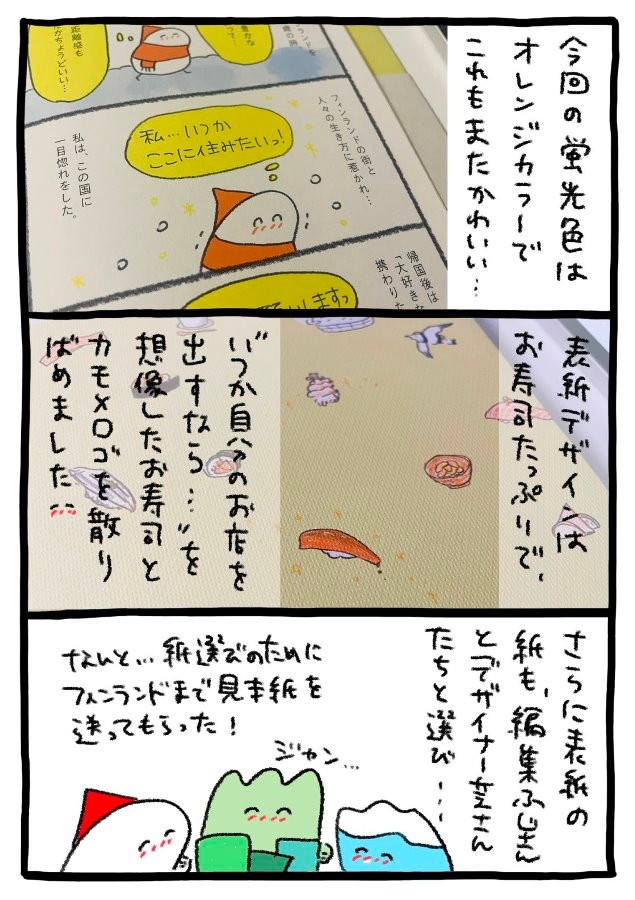 今回の蛍光色は
オレンジカラーで
これもまたかわいい…
距離感も
がちょうどいい…
人々の生き方に惹かれ…
フィンランドの街と
私…いつか
ここに住みたいっ!
私は、この国に
一目惚れをした。
帰国後は
「大好きな
携わりた
表紙デザインは
お寿司たっぷりで、
"いつか自分のお店を
出すなら…"を
想像したお寿司と
カモメロゴを散り
ばめました
さらに表紙の
紙も、編集ふじさん
とデザイナー
たちと選び…
なんと…紙選びのために
フィンランドまで見本紙を
送ってもらった!
ジャン…